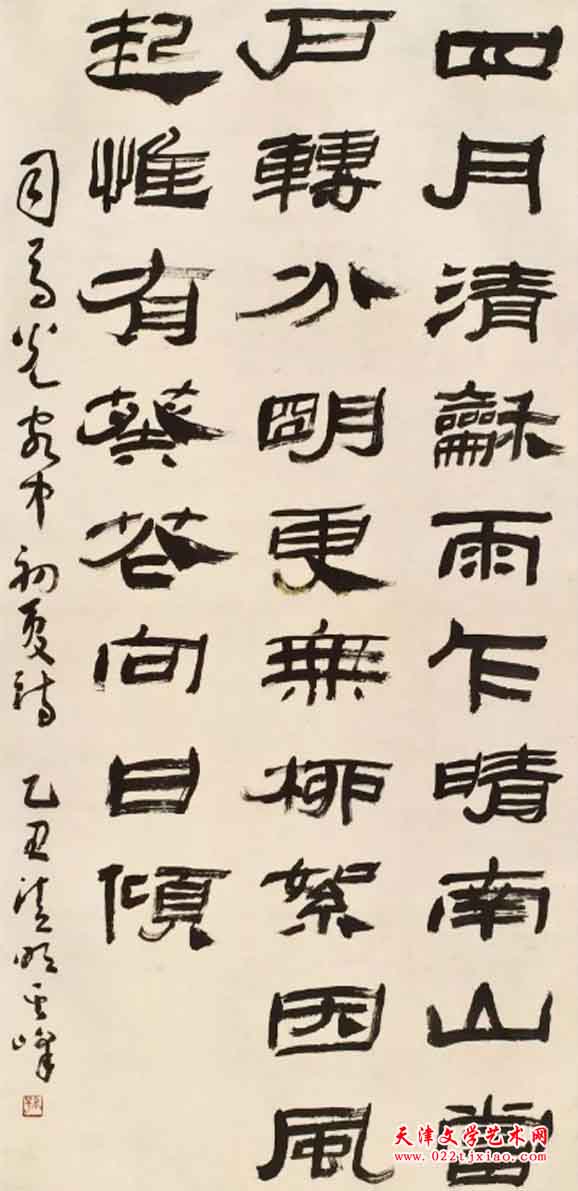 四月清龢雨乍晴南山當
户轉分明更無柳絮因風
起惟有葵花向日傾
司馬光客中初夏詩 乙丑清明其峰
天津文学艺术网
www.022tjxiao.com